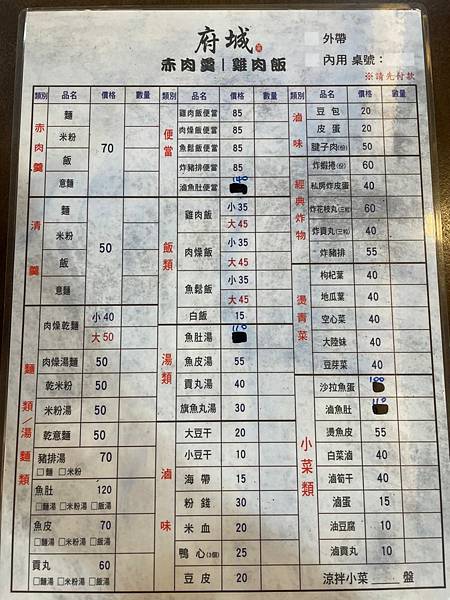 府城
赤肉羹｜雞肉飯
外帶
內用 桌號：
※請先付款
類別 品名 價格 數量
赤肉羹
麵
米粉
飯
意麵
70
清羹
麵
米粉
飯
意麵
50
麵類/湯麵類
肉燥乾麵 小40
大50
肉燥湯麵 50
乾米粉 50
米粉湯 50
乾意麵 50
豬排湯 70
□麵 □米粉
魚肚 120
□麵湯 □米粉湯 □飯湯
魚皮 70
□麵湯 □米粉湯 □飯湯
貢丸 60
□麵湯 □米粉湯 □飯湯
類別 品名 價格 數量
便當
雞肉飯便當 85
肉燥飯便當 85
魚鬆飯便當 85
炸豬排便當 85
滷魚肚便當 140
飯類
雞肉飯 小35
大45
肉燥飯 小35
大45
魚鬆飯 小35
大45
白飯 15
湯類
魚肚湯 110
魚皮湯 55
貢丸湯 40
旗魚丸湯 30
滷味
大豆干 20
小豆干 10
海帶 15
粉錢 30
米血 20
鴨心(3個) 25
豆皮 20
類別 品名 價格 數量
滷味
豆包 20
皮蛋 20
腱子肉(份) 50
經典炸物
炸蝦捲(份) 60
私房炸皮蛋 40
炸花枝丸(三粒) 60
炸貢丸(三粒) 40
炸豬排 55
燙青菜
枸杞葉 40
地瓜葉 40
空心菜 40
大陸妹 40
豆芽菜 40
小菜類
沙拉魚蛋 100
滷魚肚 110
燙魚皮 55
白菜滷 40
滷筍干 40
滷蛋 15
油豆腐 10
滷貢丸 10
涼拌小菜 盤